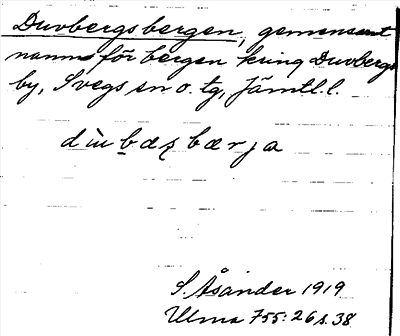 Duvbergsbergen, gemensamt
namn för bergen kring Duvbergs
by, Svegs sn o. tg, Jämtl. l.
dùbæʂbærja
S. Åsander 1919
Ulma 755:26 s. 38